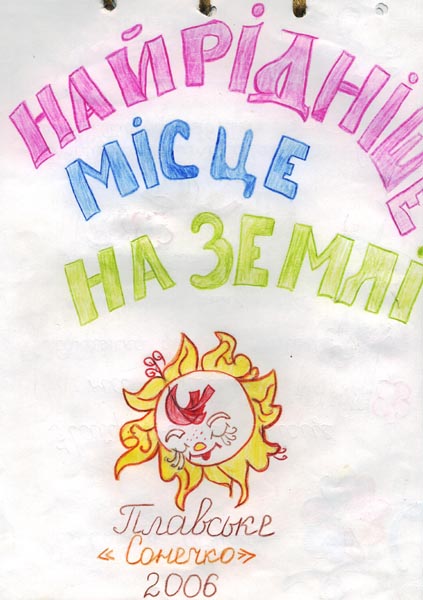 НАЙРІДНІШЕ
МІСЦЕ
НА ЗЕМЛІ
Плавське
« Сонечко»
2006